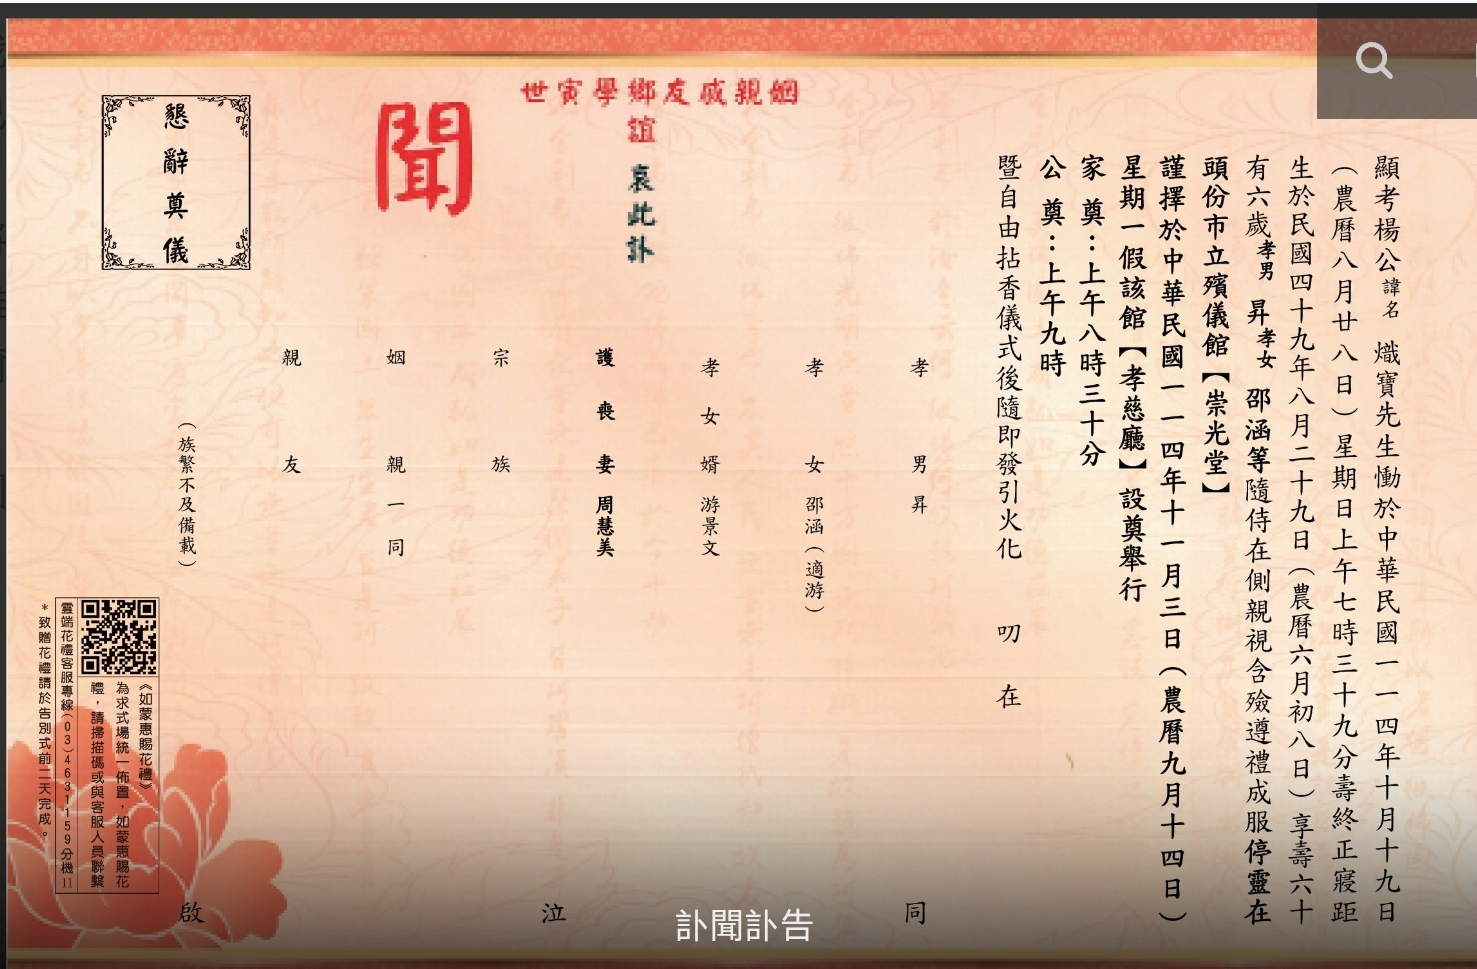 顯考楊公諱名熾寶先生慟於中華民國一一四年十月十九日
（農曆八月廿八日）星期日上午七時三十九分壽終正寢距
生於民國四十九年八月二十九日（農曆六月初八日）享壽六十
有六歲孝男昇孝女邵涵等隨侍在側親視含殮遵禮成服停靈在
頭份市立殯儀館【崇光堂】
謹擇於中華民國一一四年十一月三日（農曆九月十四日）
星期一假該館【孝慈廳】設奠舉行
家奠：上午八時三十分
公奠：上午九時
暨自由拈香儀式後隨即發引火化 叨在
姻親戚友鄉學寅世
誼
哀此訃
聞
孝男昇
孝女邵涵（適游）
孝女婿游景文
護喪妻周慧美
宗族
姻親一同
親友
（族繁不及備載）
同
泣
啟
懇辭奠儀
《如蒙惠賜花禮》
為求式場統一佈置，如蒙惠賜花
禮，請掃描碼或與客服人員聯繫
雲端花禮客服專線(03)4631159分機11
*致贈花禮請於告別式前二天完成。
訃聞訃告